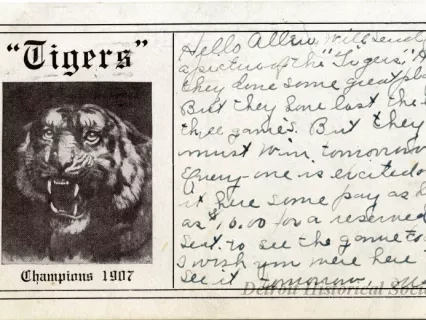 "Tigers"
Champions 1907
Hello Allen, Will send
a picture of the "Tigers."
they done some great
But they have lost the
three games. But they
must win tomorrow
Every-one is excited
it here some pay as
as $10.00 for a reserved
seat to see the game to
I wish you were here
see it tomorrow,
Detroit Historical Soc